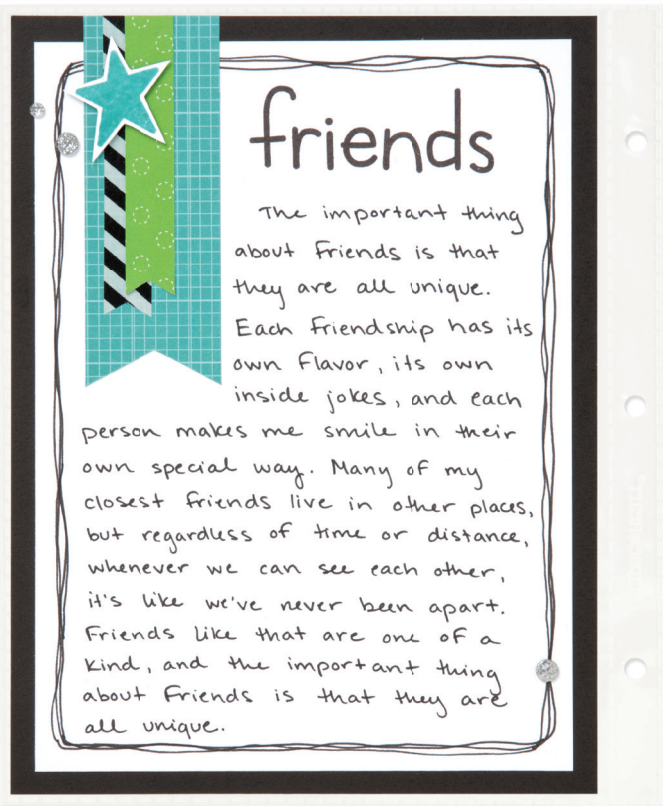 friends
The important thing
about friends is that
they are all unique.
Each friendship has its
own flavor, its own
inside jokes, and each
person makes me smile in their
own special way. Many of my
closest friends live in other places,
but regardless of time or distance,
whenever we can see each other,
it's like we've never been apart.
Friends like that are one of a
kind, and the important thing
about friends is that they are
all unique.